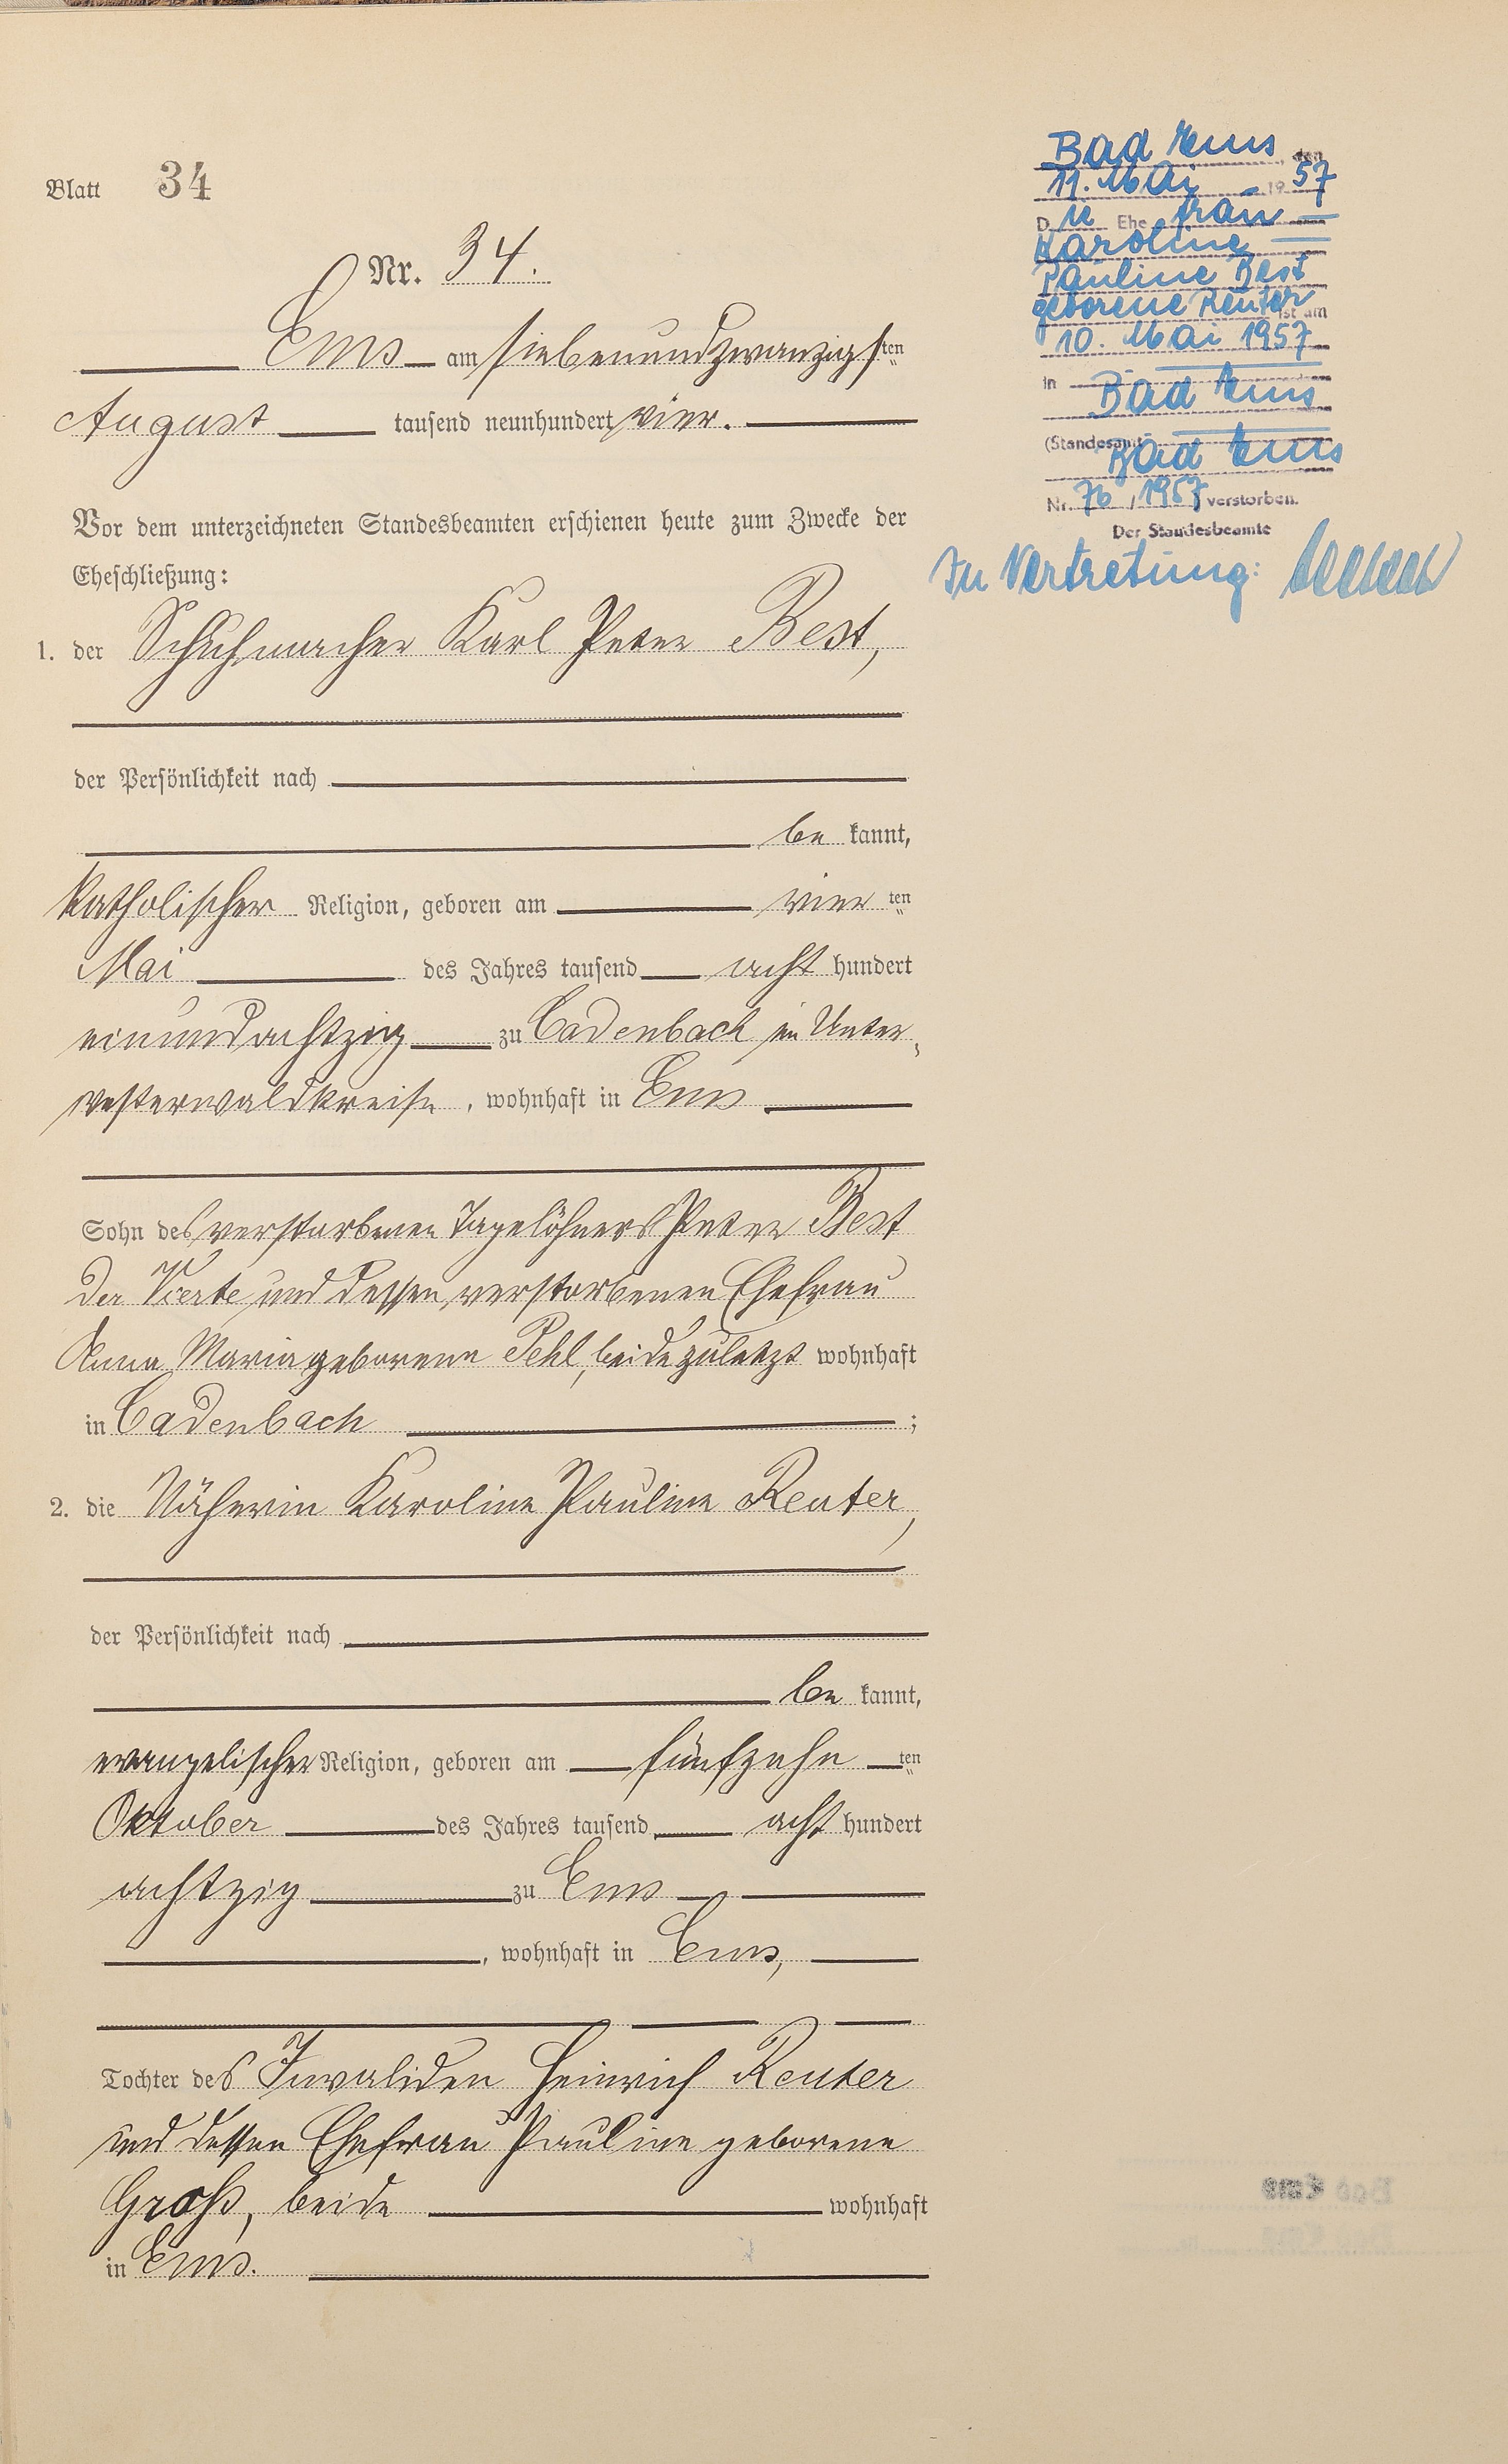 Blatt 34
Nr. 34.
Ems am siebenundzwanzigsten
August tausend neunhundert vier.
Vor dem unterzeichneten Standesbeamten erschienen heute zum Zwecke der
Eheschließung:
1. der Schuhmacher Karl Peter Best,
der Persönlichkeit nach
be kannt,
katholischer Religion, geboren am vier ten
Mai des Jahres tausend acht hundert
einundachtzig zu Cadenbach im Unter-
westerwaldkreise, wohnhaft in Ems
Sohn des verstorbenen Tagelöhners Peter Best
der Vierte und dessen verstorbenen Ehefrau
Anna Maria geborene Pehl, beide zuletzt wohnhaft
in Cadenbach ;
2. die Näherin Karoline Pauline Reuter,
der Persönlichkeit nach
be kannt,
evangelischer Religion, geboren am fünfzehn ten
Oktober des Jahres tausend acht hundert
achtzig zu Ems
, wohnhaft in Ems,
Tochter des Invaliden Heinrich Reuter
und dessen Ehefrau Pauline geborene
Groß, beide wohnhaft
in Ems.
Bad Ems, den
11. Mai 19 57
D ie Ehe frau
Karoline
Pauline Best
geborene Reuter ist am
10. Mai 1957
in Bad Ems
(Standesamt
Bad Ems
Nr. 76 / 1957 verstorben.
Der Standesbeamte
In Vertretung: